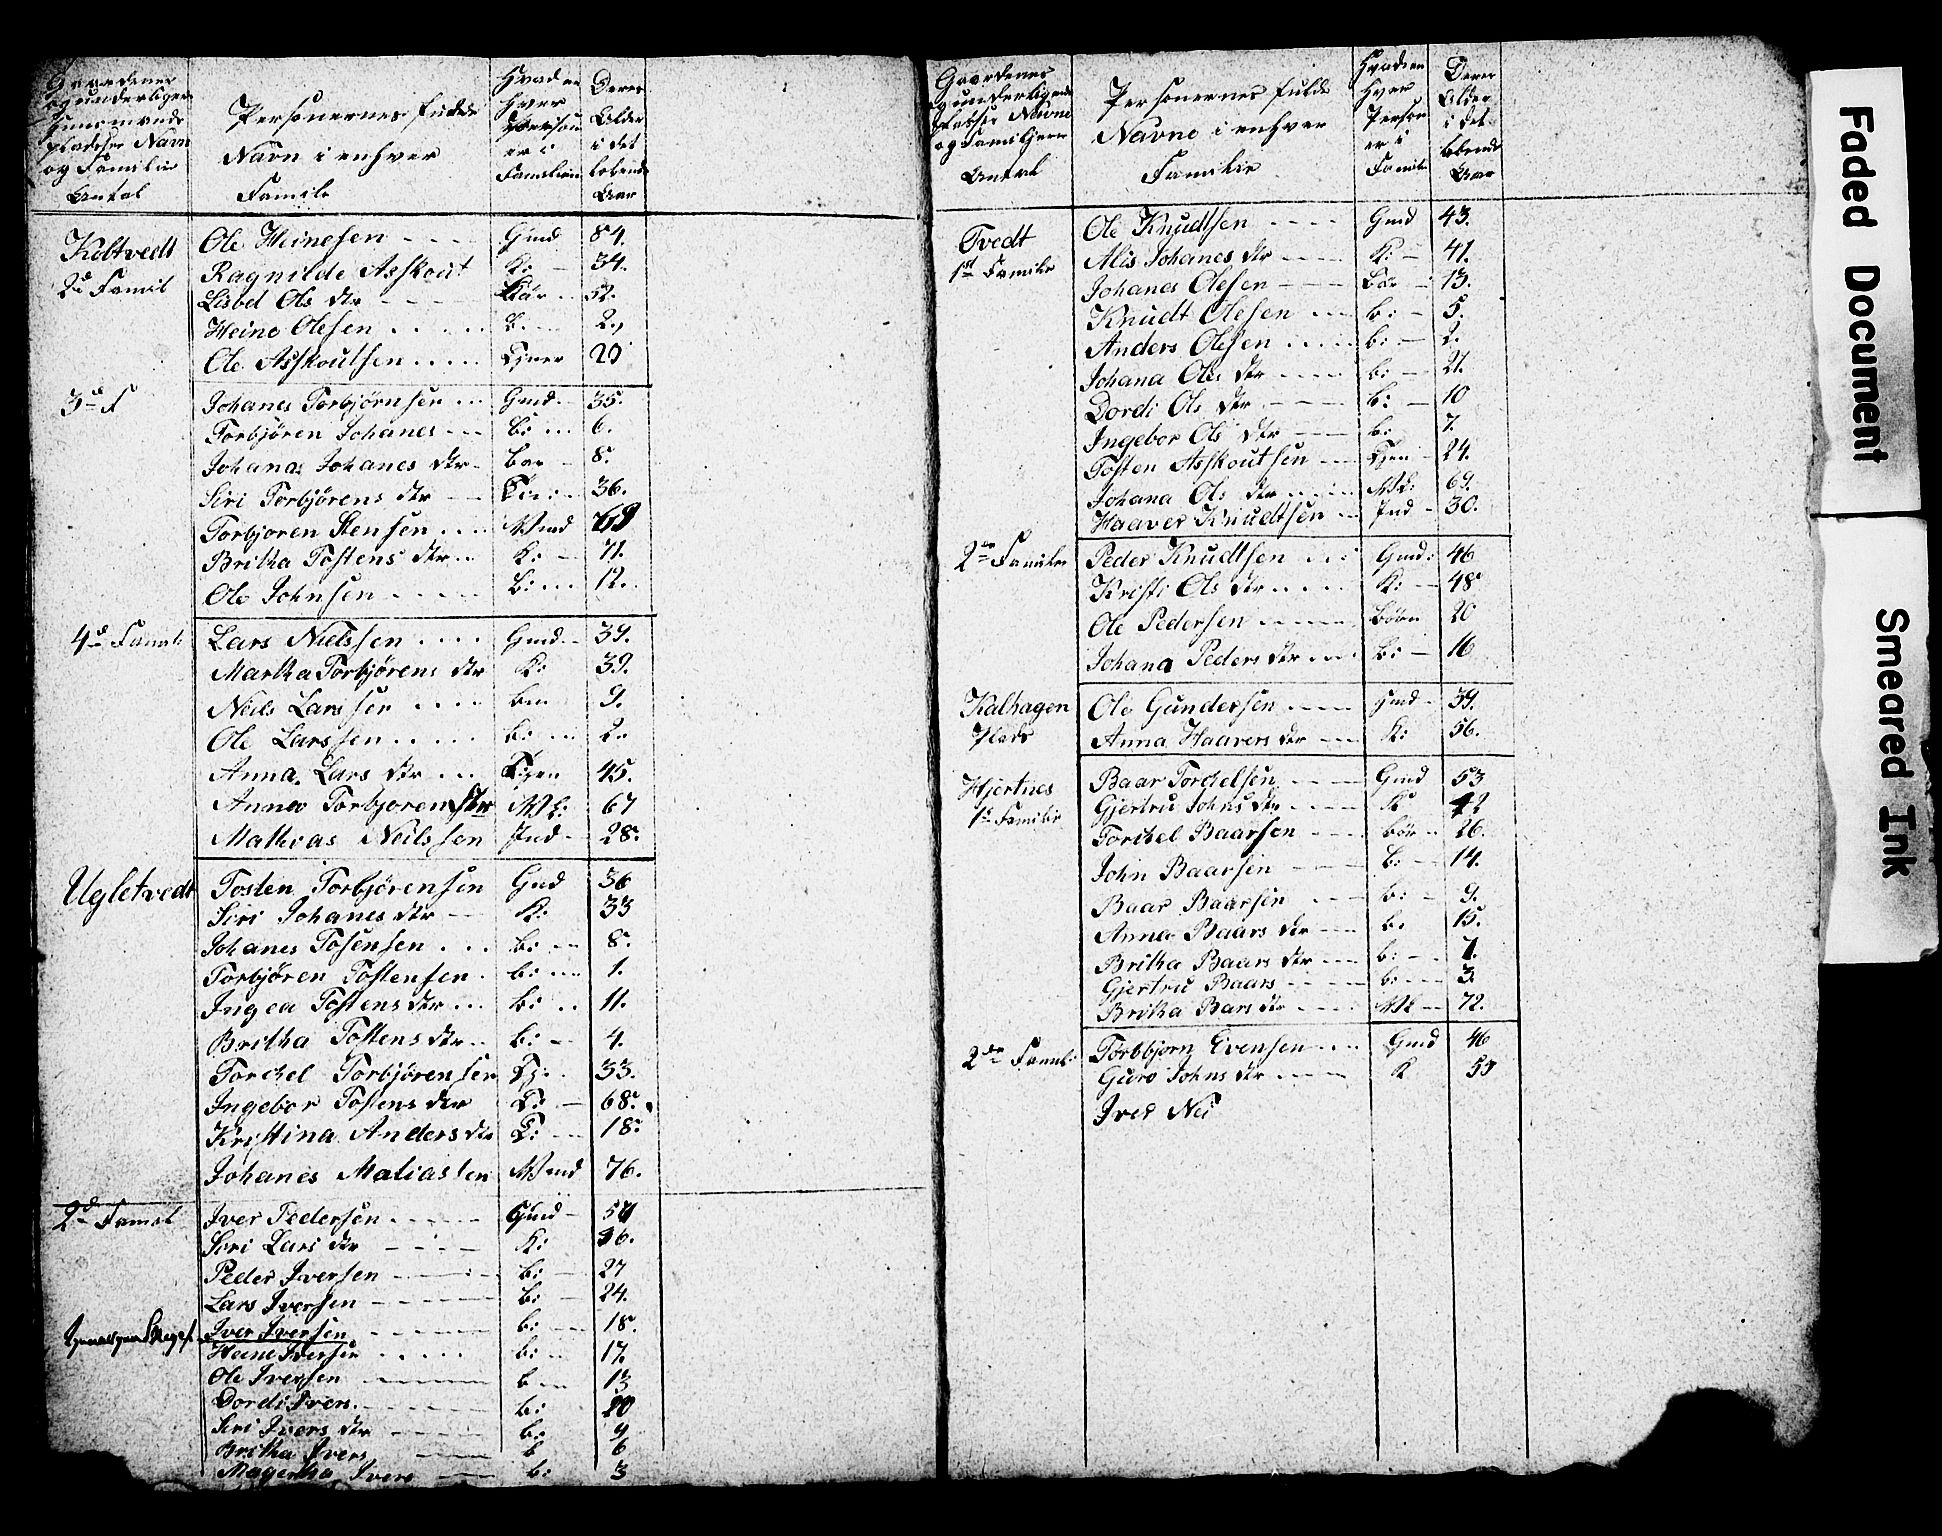 Gaardenes
og underligen
Huusmands
pladser Navn
og Familie
Antal
Personernes fulde
Navn i enhver
Famile
Hvad er
hver
Person
er i
Familien
Deres
Alder
i det
løbende
Aar
Koltvedt Ole Heinesen Gmd 84.
Ragnilde Asskout K: 34.
2d Famil Lisbet Ols dtr 52.
Heine Olesen B. 2.
Ole Asskoutsen Tjener 20
3d F Johanes Torbjørnsen Gmd. 35.
Torbjøren Johanes b: 6.
Johanas Johanes dtr bar 8.
Siri Torbjørens dtr 36.
Torbjoren Stensen Mand 69
Britha Tostens dtr K: 71.
Ole Johnsen B: 12.
4d Famili Lars Nielssen Gmd 39.
Martha Torbjørens dtr K: 39.
Neils Larssen ban 9.
Ole Larssen b: 2.
Anna Lars dtr Tjen 45.
Anna Torbjorens dtr 67
Mathias Neilssen Ind 28.
Ugletvedt Tosten Torbjørensen Gmd 36
Siri Johanes dtr K: 33
Johanes Tosensen b: 8.
Torbjøren Tostensen b: 1.
Ingea Tostens dtr b: 11.
Britha Tostens dtr b: 4.
Torchel Torbjørensen Tj: 33.
Ingebor Tostens dtr T: 68.
Kristina Anders dtr T: 18.
Johanes Matiassen Mand 76.
2d Famil Iver Pedersen Gmd 57
Siri Lars dtr K: 36.
Peder Iversen b: 27
Lars Iversen b: 24.
Iver Iversen b: 18.
Heine Iversen b: 17.
Ole Iversen b 13
Dordi Ivers b: 20
Siri Ivers dtr b: 9
Britha Ivers b 6
Magertha Ivers b: 3
Gaardenes
og underligende
pladser Navne
og Familiens
Antal
Personernes fulde
Navne i enhver
Familie
Hvad en
hver
Person
er i
Familie
Deres
Alder
i det
løbende
Aar
Tvedt Ole Knudtsen Gmd 43.
Alis Johanes dtr K: 41.
1st Familie Johanes Olesen Bør 13.
Knudt Olesen b: 5.
Anders Olesen b: 2.
Johana Oles dtr b: 21.
Dordi Ols dtr b: 10
Ingebor Ols dtr b: 7.
Tosten Asskoutsen Tjen 24.
Johana Ols dtr 69.
Haaver Knudtsen Ind 30.
2de Familie Peder Knudtsen Gmd: 46
Kristi Ols dtr K: 48.
Ole Pedersen Børn 20
Johana Peders dtr b: 16
Kalhagen Ole Gundersen Gmd 39.
Plads Anna Haavers dtr K: 56.
Hjertnes Baar Torchelsen Gmd 53
Gjertru Johns dtr K 42
1st Familie Torchel Baarsen bør 26.
John Baarsen b: 14.
Baar Baarsen b: 9.
Anna Baars dtr b. 15.
Britha Baars dtr b: 7.
Gjertru Baars b: 3
Britha Bars dtr 72.
2de Famili Torbbjorn Evensen Gmd 46
Guro Johns dtr K 53
Iver Nei
Faded Document
Smeared Ink